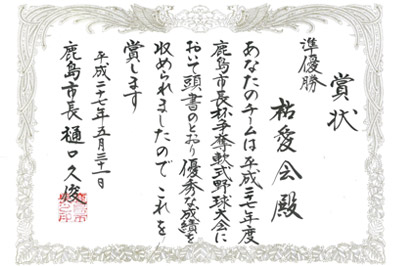 賞状
準優勝
祐愛会殿
あなたのチームは平成二十七年度
鹿島市長杯争奪軟式野球大会に
おいて頭書のとおり優秀な成績を
収められましたのでこれを
賞します
平成二十七年五月三十一日
鹿島市長 樋口久俊